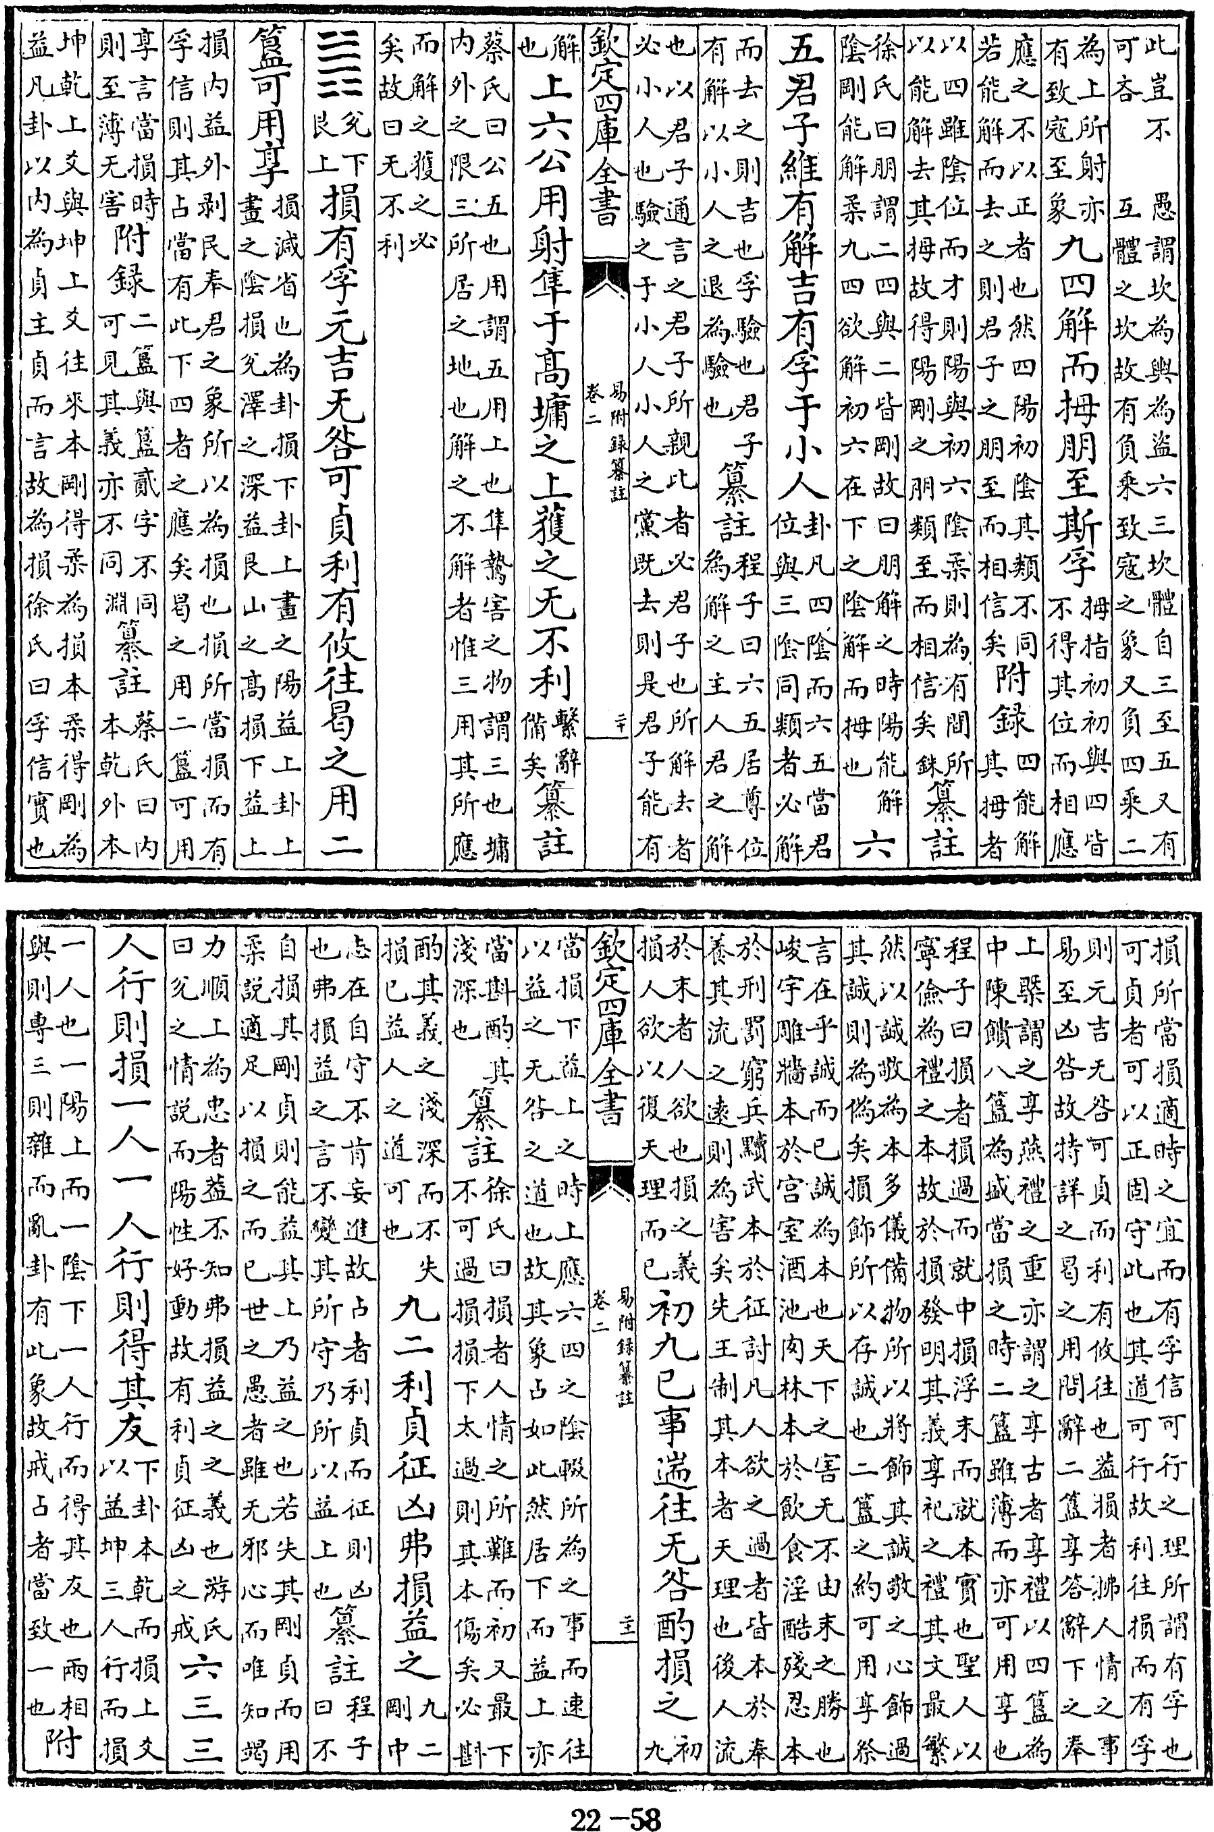 此豈不
可吝
愚謂坎為輿為盜六三坎體自三至五又有
互體之坎故有負乘致寇之象又負四乘二
為上所射亦
有致寇至象
九四解而拇朋至斯孚
拇指初初與四皆
不得其位而相應
應之不以正者也然四陽初陰其類不同
若能解而去之則君子之朋至而相信矣
附録
四能解
其拇者
以四雖陰位而才則陽與初六陰柔則為有間所
以能解去其拇故得陽剛之朋類至而相信矣銖
纂註
徐氏曰朋謂二四與二皆剛故曰朋解之時陽能解
陰剛能解柔九四欲解初六在下之陰解而拇也
六
五君子維有解吉有孚于小人
卦凡四陰而六五當君
位與三陰同類者必解
而去之則吉也孚驗也君子
有解以小人之退為驗也
纂註
程子曰六五居尊位
為解之主人君之解
也以君子通言之君子所親比者必君子也所解去者
必小人也驗之于小人小人之黨既去則是君子能有
欽定四庫全書
易附録纂註
卷二
二十
解
也
上六公用射隼于髙墉之上獲之无不利
繫辭
備矣
纂註
蔡氏曰公五也用謂五用上也隼鷙害之物謂三也墉
内外之限三所居之地也解之不解者惟三用其所應
而解之獲之必
矣故曰无不利
䷨
兊下
艮上
損有孚元吉无咎可貞利有攸往曷之用二
簋可用享
損減省也為卦損下卦上畫之陽益上卦上
畫之陰損兊澤之深益艮山之髙損下益上
損内益外剥民奉君之象所以為損也損所當損而有
孚信則其占當有此下四者之應矣曷之用二簋可用
享言當損時
則至薄无害
附録
二簋與簋貳字不同
可見其義亦不同淵
纂註
蔡氏曰内
本乾外本
坤乾上爻與坤上爻往來本剛得柔為損本柔得剛為
益凡卦以内為貞主貞而言故為損徐氏曰孚信實也
損所當損適時之宜而有孚信可行之理所謂有孚也
可貞者可以正固守此也其道可行故利往損而有孚
則元吉无咎可貞而利有攸往也益損者怫人情之事
易至凶咎故特詳之曷之用問辭二簋享答辭下之奉
上槩謂之享燕禮之重亦謂之享古者享禮以四簋為
中陳饋八簋為盛當損之時二簋雖薄而亦可用享也
程子曰損者損過而就中損浮末而就本實也聖人以
寧儉為禮之本故於損發明其義享祀之禮其文最繁
然以誠敬為本多儀備物所以將飾其誠敬之心飾過
其誠則為偽矣損飾所以存誠也二簋之約可用享祭
言在乎誠而已誠為本也天下之害无不由末之勝也
峻宇雕牆本於宫室酒池肉林本於飲食淫酷殘忍本
於刑罰窮兵黷武本於征討凡人欲之過者皆本於奉
養其流之逺則為害矣先王制其本者天理也後人流
於末者人欲也損之義
損人欲以復天理而已
初九已事遄往无咎酌損之
初
九
欽定四庫全書
易附録纂註
卷二
二十一
當損下益上之時上應六四之陰輟所為之事而速往
以益之无咎之道也故其象占如此然居下而益上亦
當斟酌其
淺深也
纂註
徐氏曰損者人情之所難而初又最下
不可過損損下太過則其本傷矣必斟
酌其義之淺深而不失
損已益人之道可也
九二利貞征凶弗損益之
九二
剛中
志在自守不肯妄進故占者利貞而征則凶
也弗損益之言不變其所守乃所以益上也
纂註
程子
曰不
自損其剛貞則能益其上乃益之也若失其剛貞而用
柔説適足以損之而已世之愚者雖无邪心而唯知竭
力順上為忠者葢不知弗損益之之義也游氏
曰兊之情説而陽性好動故有利貞征凶之戒
六三三
人行則損一人一人行則得其友
下卦本乾而損上爻
以益坤三人行而損
一人也一陽上而一陰下一人行而得其友也兩相
與則專三則雜而亂卦有此象故戒占者當致一也
附
22—58